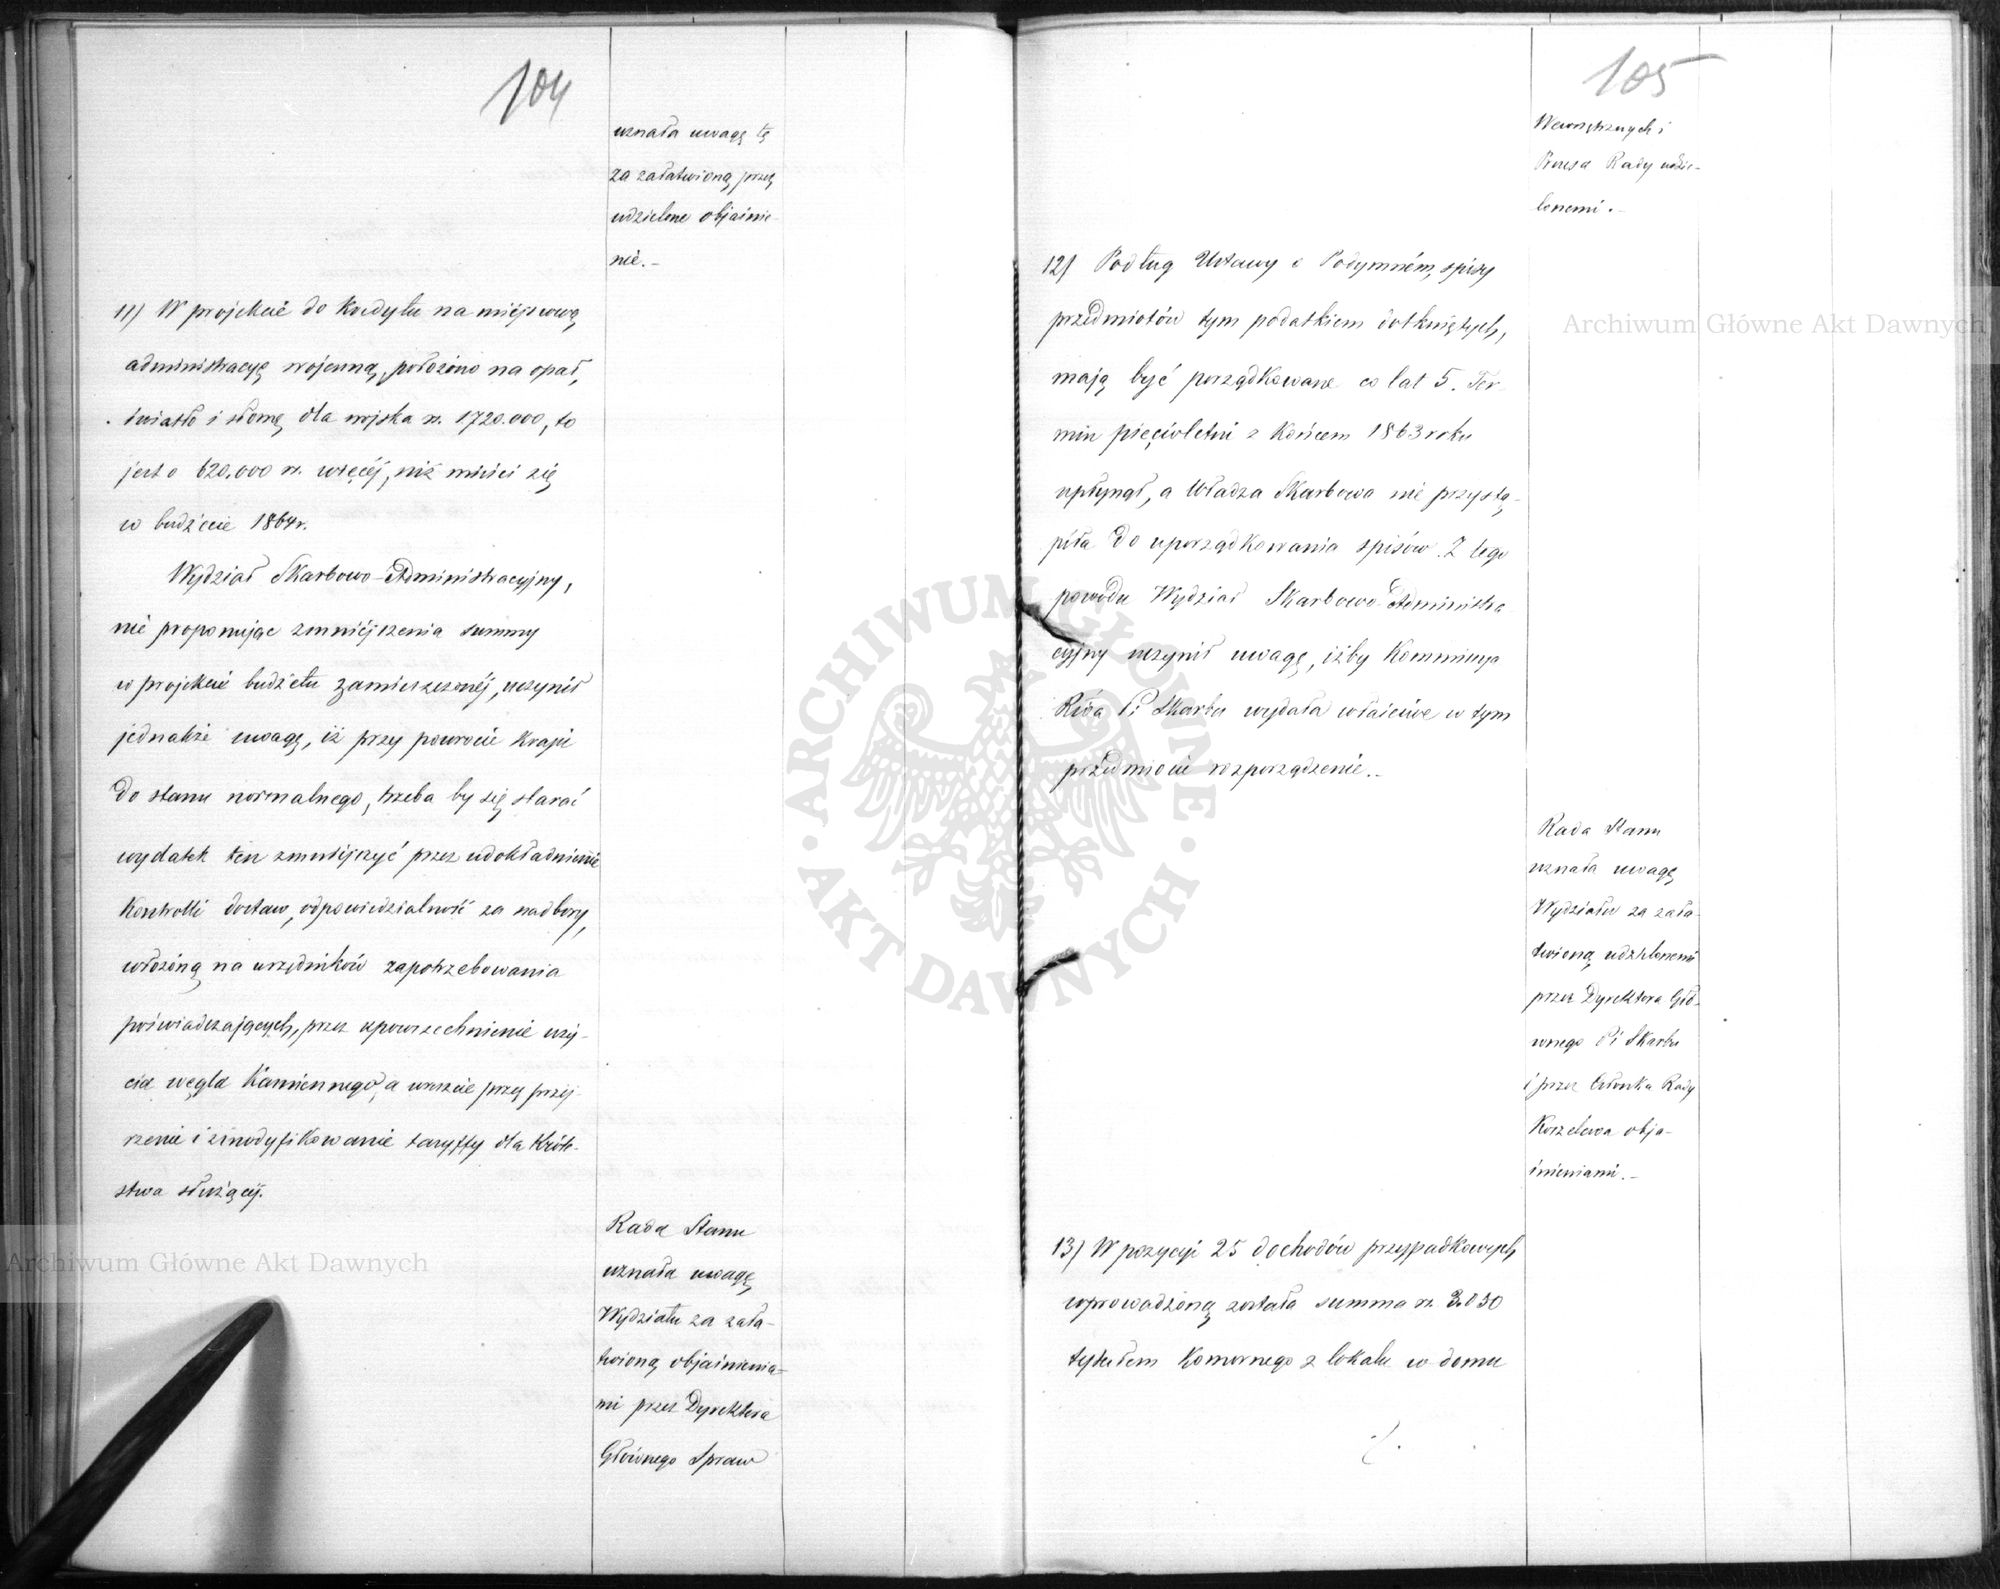 104
uznała uwagę tę
za załatwioną przez
udzielone objaśnie-
nie.-
11) W projekcie do Kredytu na miejscową
administracyę wojenną, położono na opał,
światło i słomę dla wojska rs. 1720.000, to
jest o 620.000 rs. więcéj, niż mieści się
w budżecie 1864r.
Wydział Skarbowo-Administracyjny,
nie proponując zmniejszenia summy
w projekcie budżetu zamieszczonéj, uczynił
jednakże uwagę, iż przy powrocie Kraju
do stanu normalnego, trzeba by się starać
wydatek ten zmniejszyć przez udokładnienie
Kontrolli dostaw, odpowiedzialność za nadbory,
włożoną na urzędników zapotrzebowania
poświadczających, przez upowszechnienie uży-
cia węgla Kamiennego, a wreszcie przez przej-
rzenie i zmodyfikowanie taryffy dla Króle-
stwa służącéj.
Rada Stanu
uznała uwagę
Wydziału za zała-
twioną objaśnienia-
mi przez Dyrektora
Głównego Spraw
105
Wewnętrznych i
Prezesa Rady udzie-
lonemi.-
12) Podług Ustawy o Podymném, spisy
przedmiotów tym podatkiem dotkniętych,
mają być porządkowane co lat 5. Ter-
min pięcioletni z Końcem 1863 roku
upłynął, a Władza Skarbowa nie przystą-
piła do uporządkowania spisów. Z tego
powodu Wydział Skarbowo-Administra
cyjny uczynił uwagę, iżby Kommissya
Rźwa P. i Skarbu wydała właściwe w tym
przedmiocie rozporządzenie.-
Rada Stanu
uznała uwagę
Wydziału za zała-
twioną udzielonemi
przez Dyrektora Głó-
wnego P. i Skarbu
i przez Członka Rady
Korzelewa obja-
śnieniami.-
13) W pozycyi 25 dochodów przypadkowych
wprowadzoną została summa rs. 3.030
tytułem Komornego z lokalu w domu
Archiwum Główne Akt Dawnych
Archiwum Główne Akt Dawnych
ARCHIWUM GŁÓWNE
AKT DAWNYCH